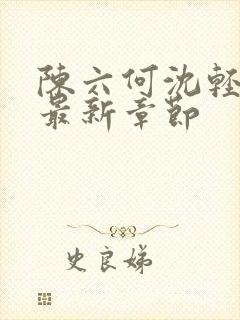 陳六何沈輕
最新章節
史良娣